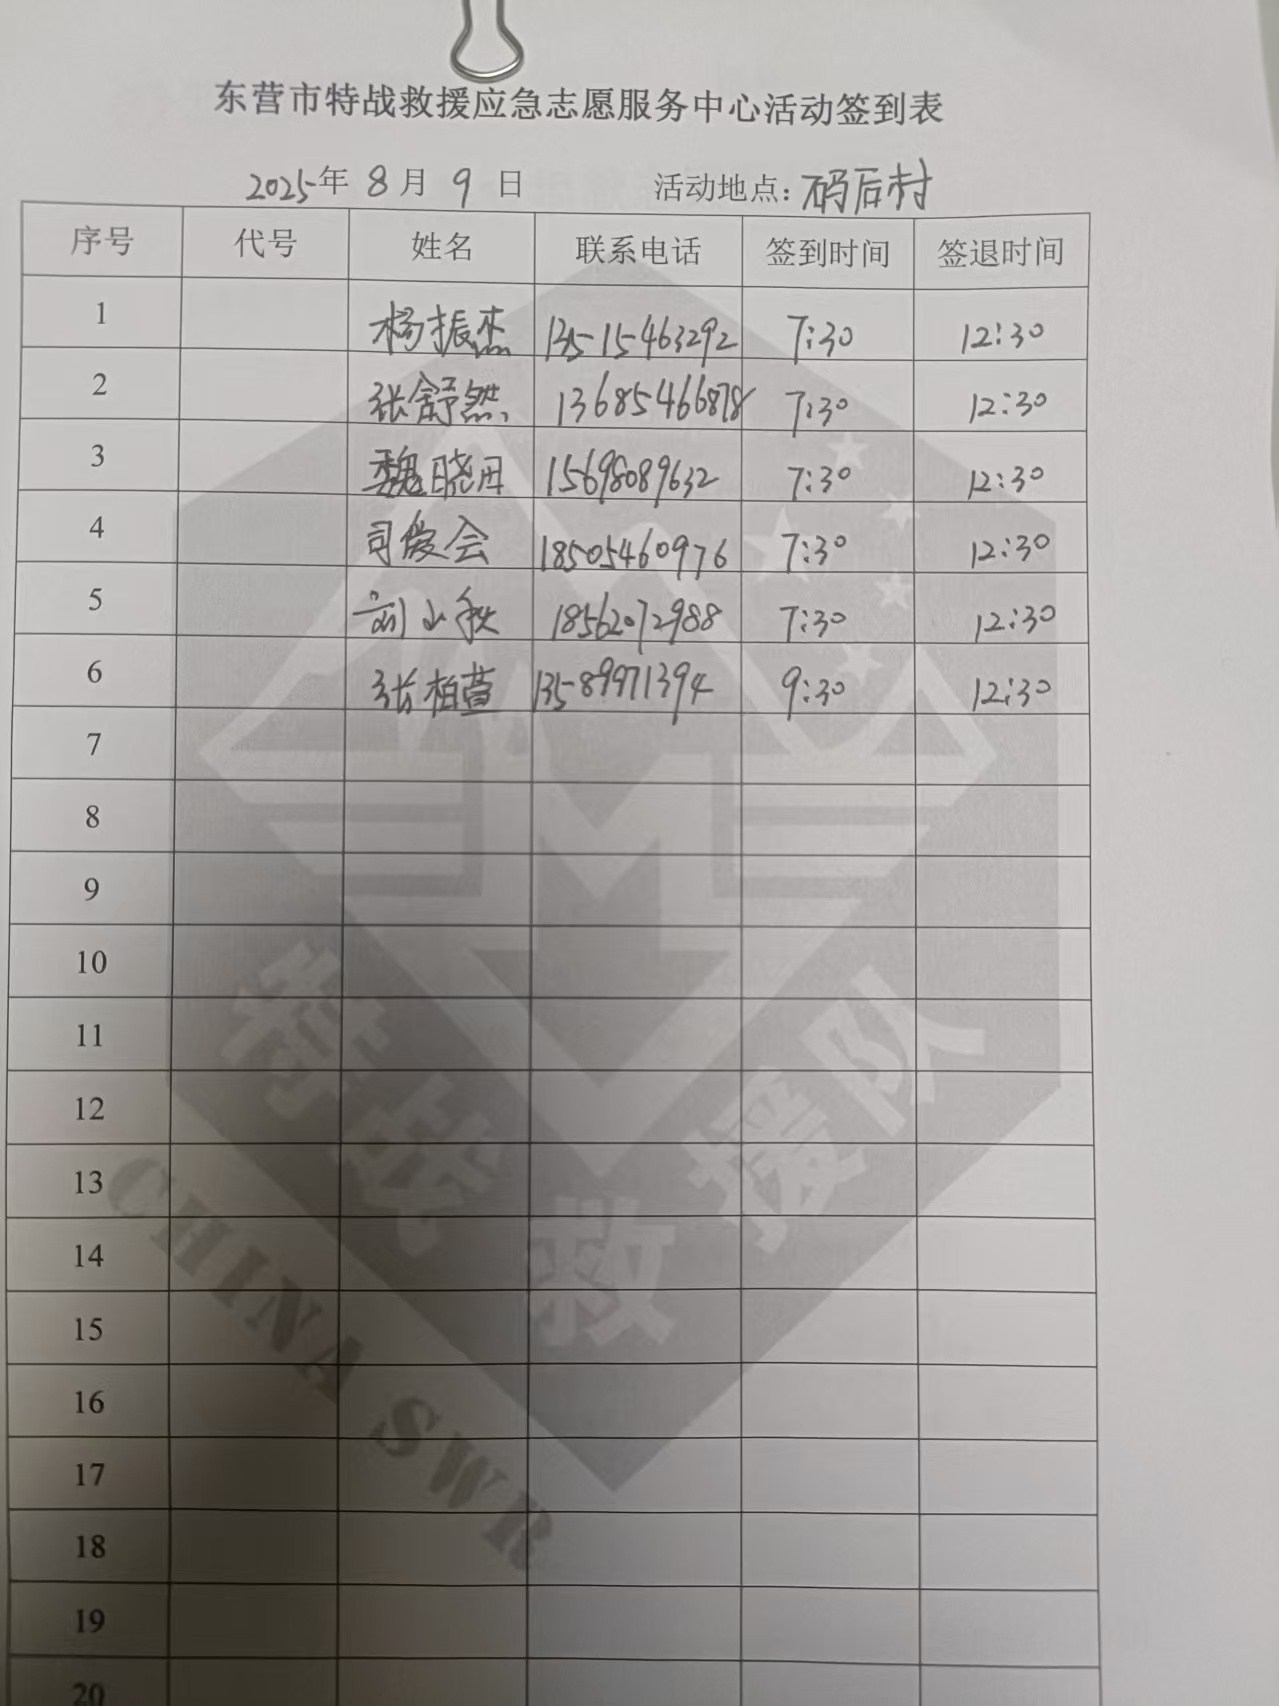 东营市特战救援应急志愿服务中心活动签到表
2025年 8月 9日 活动地点：码后村
序号 代号 姓名 联系电话 签到时间 签退时间
1 杨振杰 13515463292 7:30 12:30
2 张舒然 13685466878 7:30 12:30
3 魏晓丹 15698089632 7:30 12:30
4 司俊会 18505460976 7:30 12:30
5 刘小秋 18562072988 7:30 12:30
6 张柏萱 13589971394 9:30 12:30
7
8
9
10
11
12
13
14
15
16
17
18
19
20
特战救援队
CHINA SWR